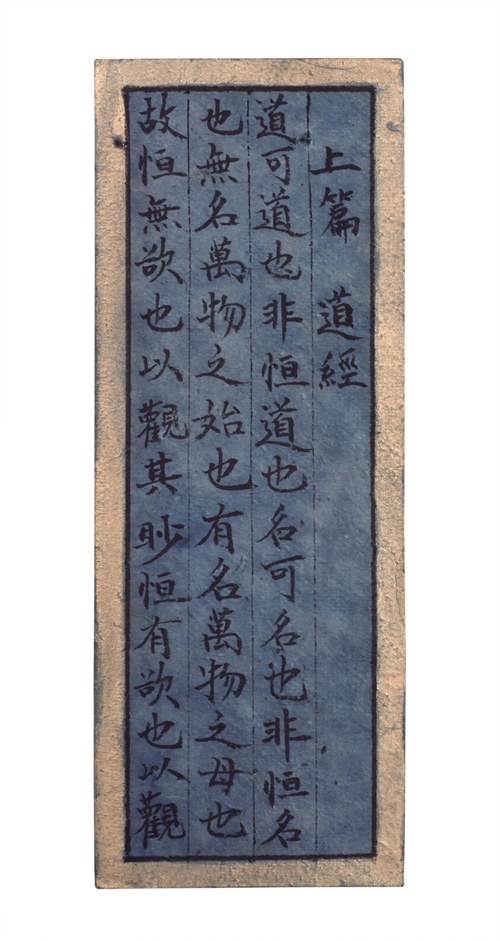 上篇 道經
道可道也非恒道也名可名也非恒名
也無名萬物之始也有名萬物之母也
故恒無欲也以觀其眇恒有欲也以觀